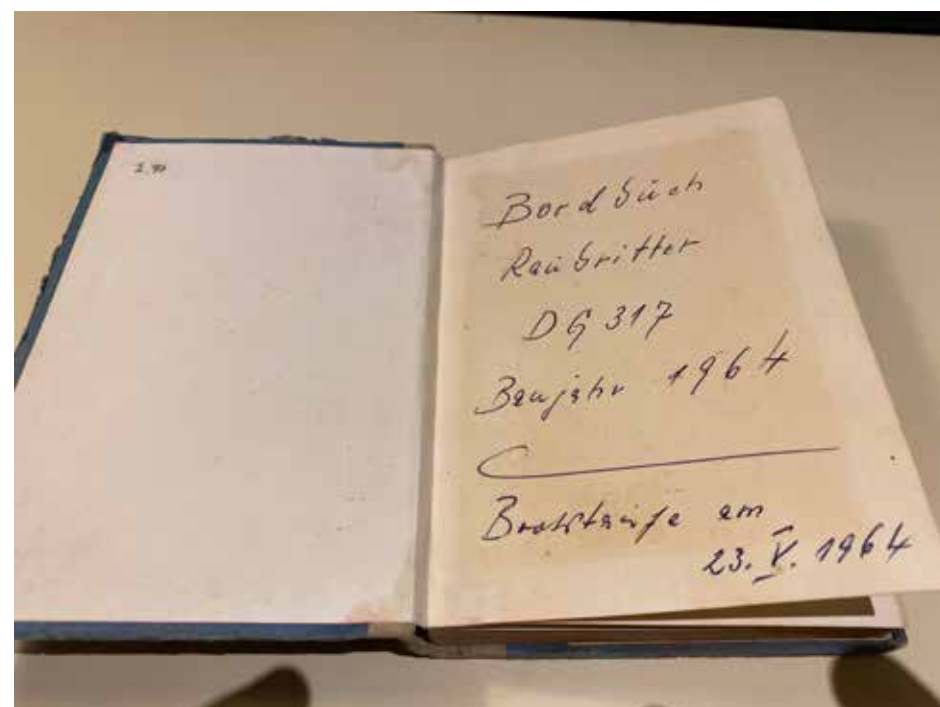 2.90
Bordbuch
Raubritter
DG 317
Baujahr 1964
Bootstaufe am
23. V. 1964